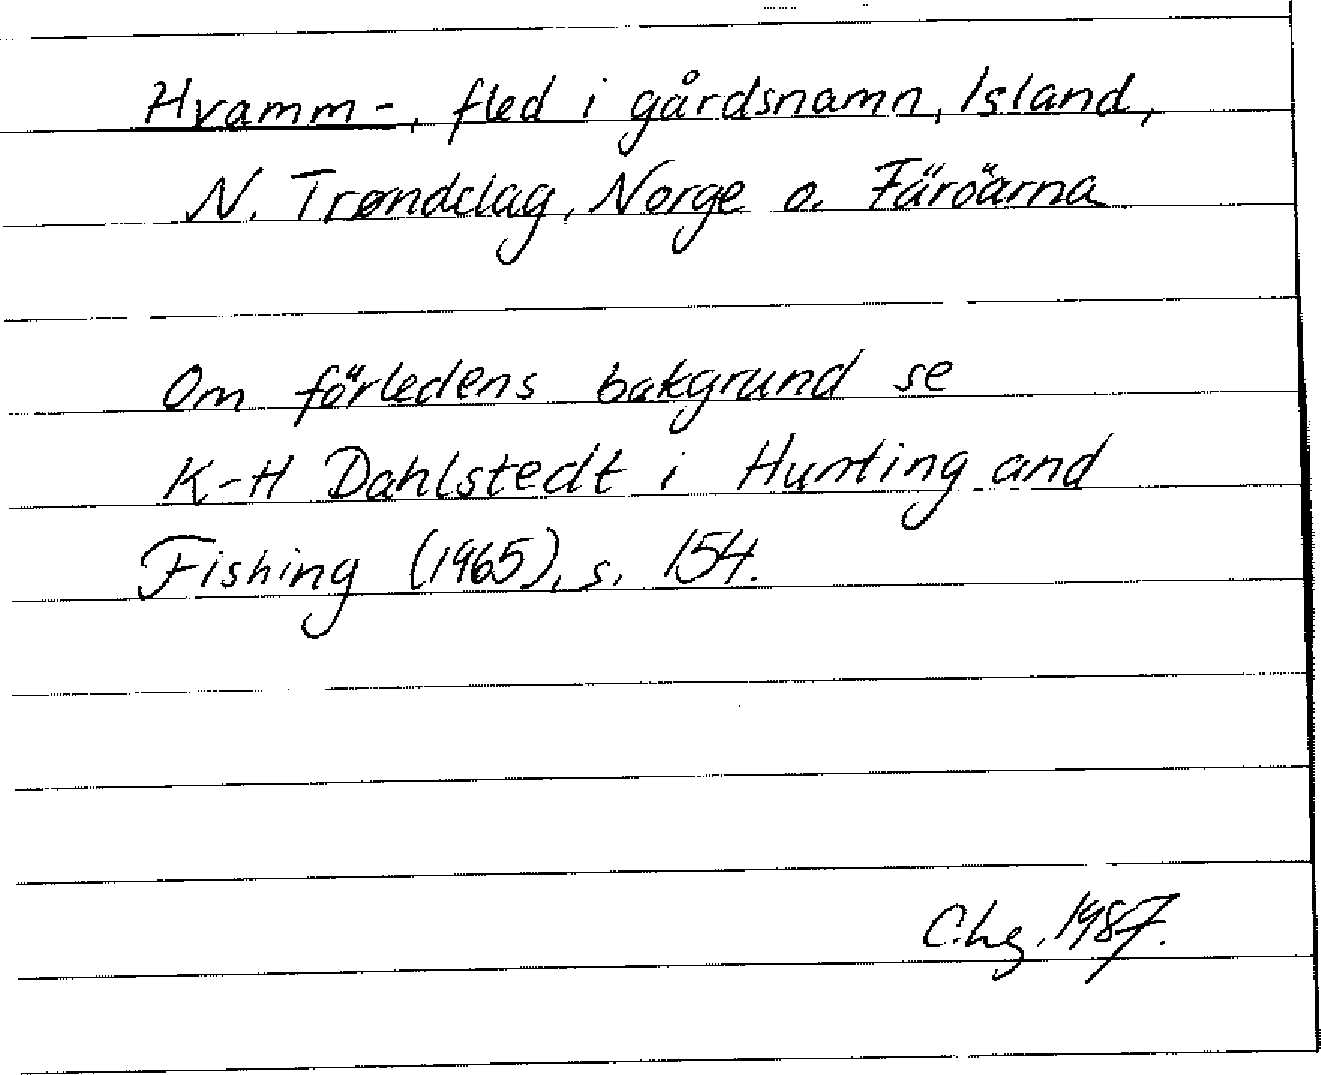 Hvamm-, fled i gårdsnamn, Island,
N. Trøndelag, Norge o. Färöarna
Om förledens bakgrund se
K-H Dahlstedt i Hunting and
Fishing (1965), s. 154.
1987.